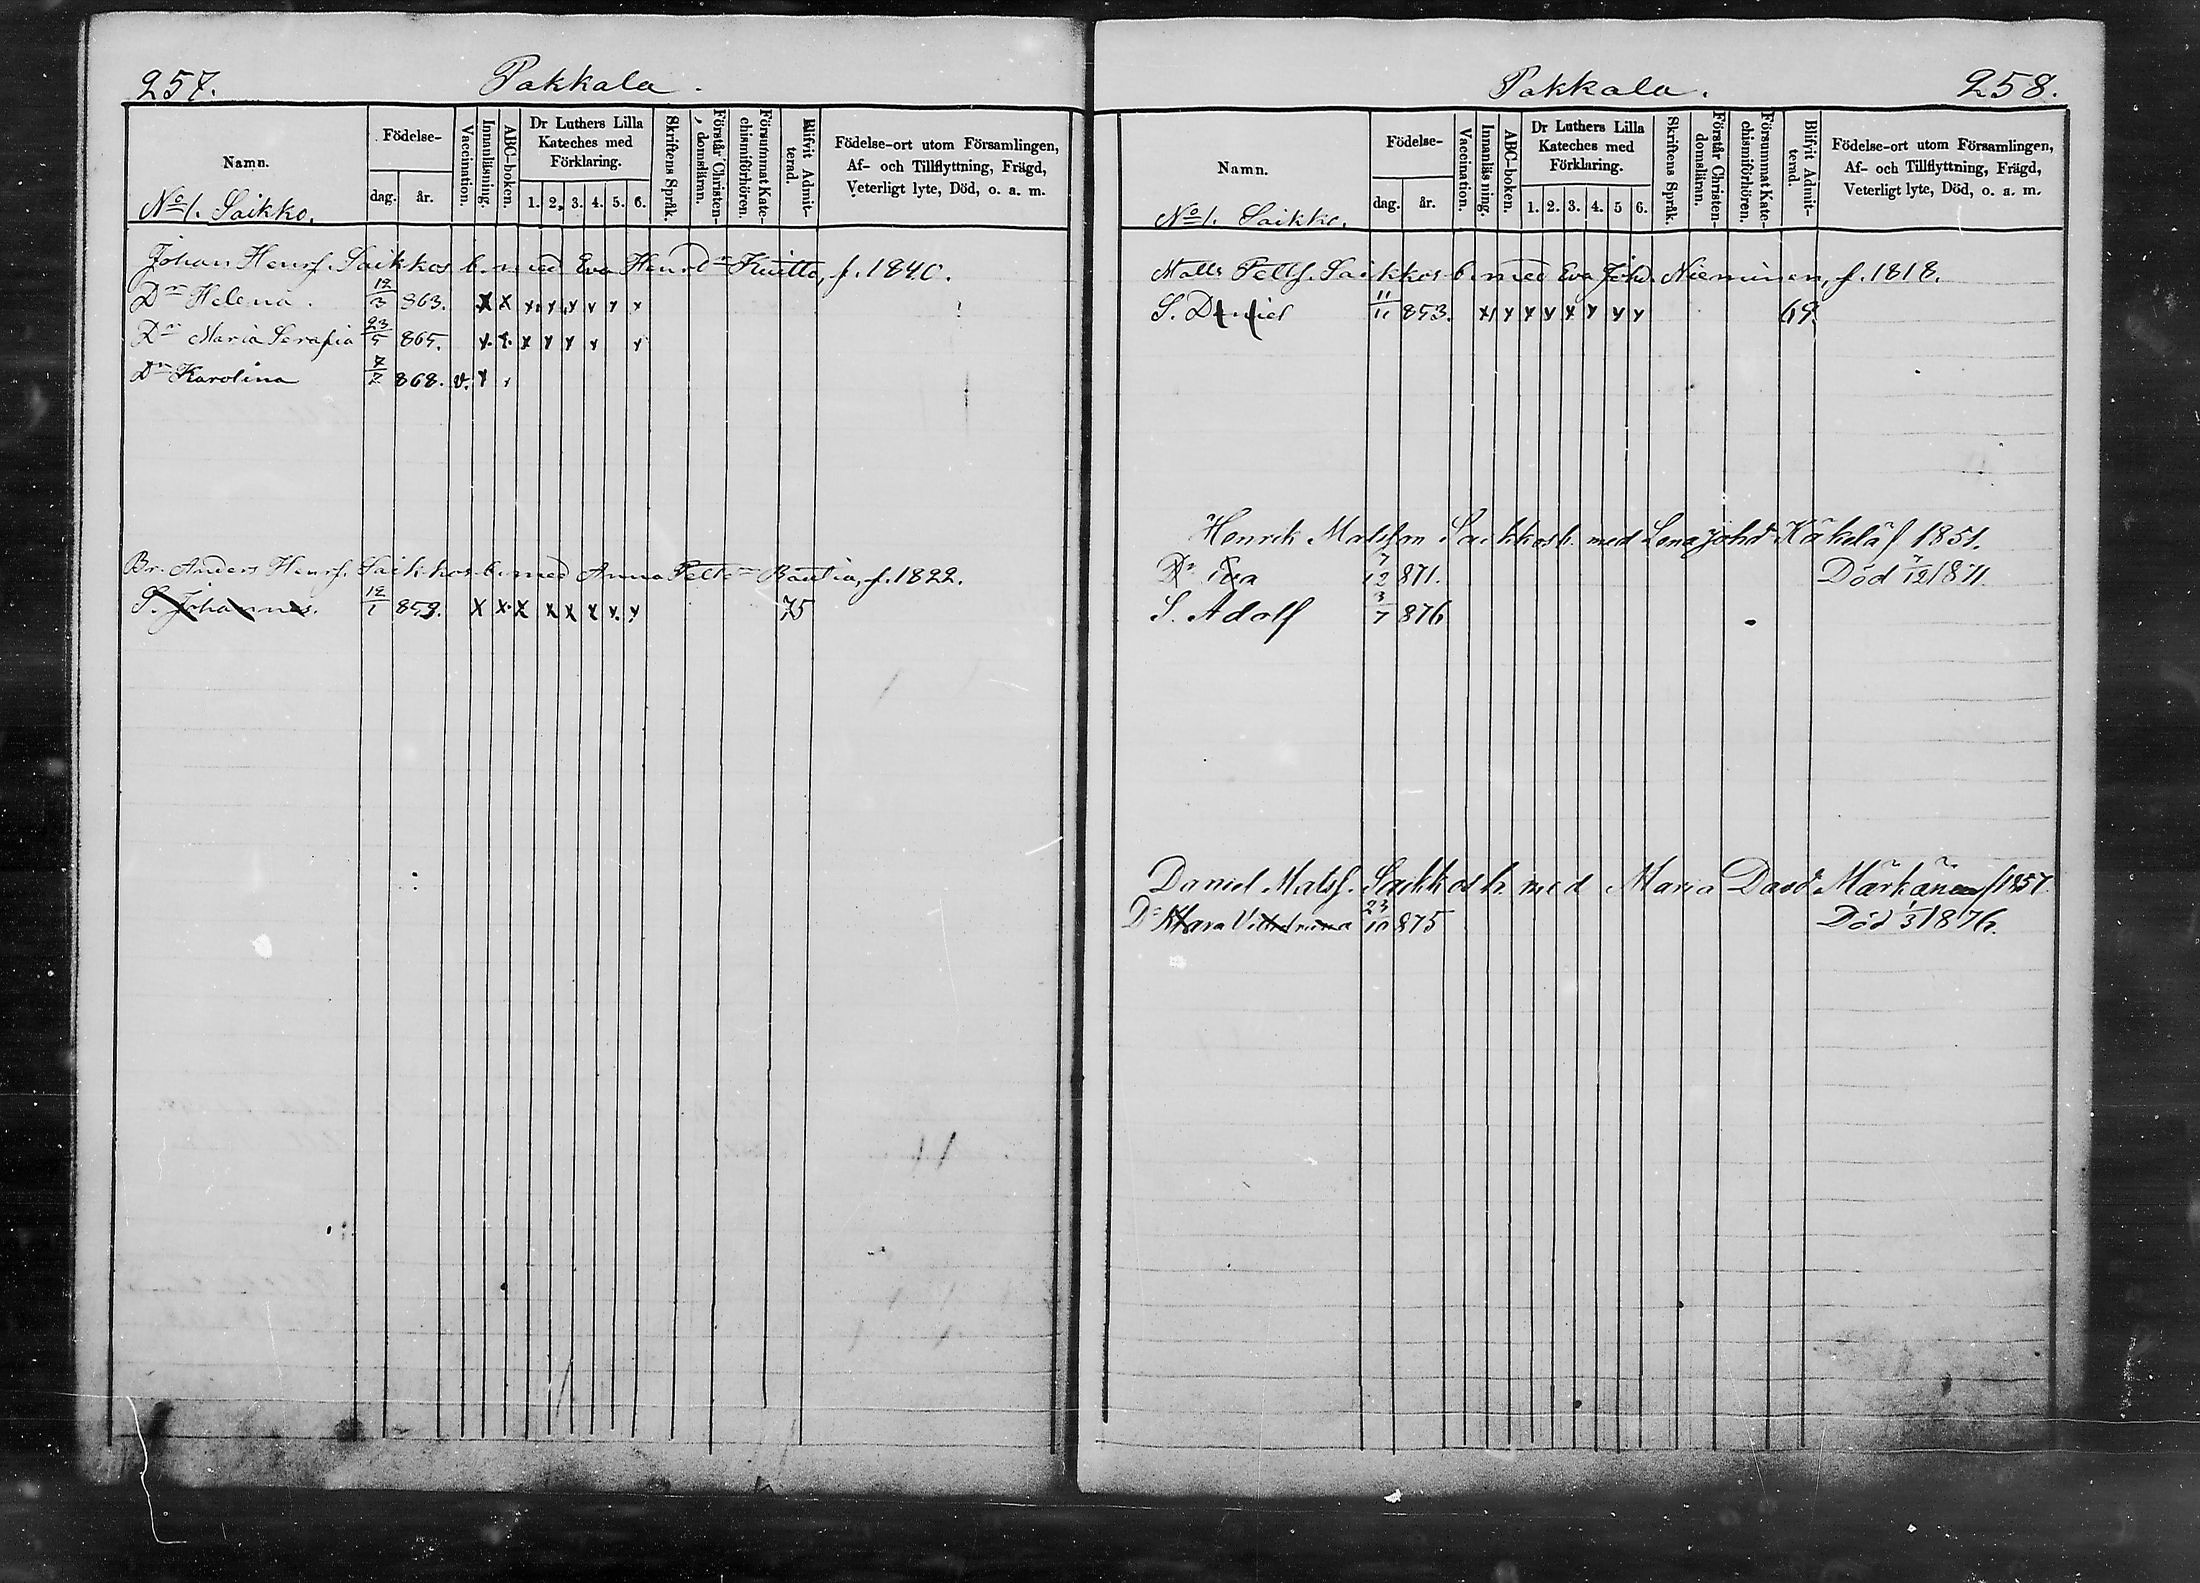 257. Pakkala.
Namn. Födelse- dag. år. Vaccination. Innanläsning. ABC-boken. Dr Luthers Lilla Kateches med Förklaring. 1. 2. 3. 4. 5. 6. Skriftens Språk. Förstår Christen-domsläran. Försummat Kate-chismiförhören. Blifvit Admit-terad. Födelse-ort utom Församlingen, Af- och Tillflyttning, Frägd, Veterligt lyte, Död, o. a. m.
No 1. Saikko.
Johan Henrs. Saikkos b. med Eva Henrdr Knitto, f. 1840.
Dr Helena. 12/3 863. x x x y y v y y
Dr Maria Serafia 23/5 865. y. y. x y y y y
Dr Karolina 7/7 868. v. y
Br. Anders Henrs. Saikkos b. med Anna Pettdr f. 1822.
S. Johannes. 12/1 859. x x x x x x y. y 75
Pakkala. 258.
Namn. Födelse- dag. år. Vaccination. Innanläsning. ABC-boken. Dr Luthers Lilla Kateches med Förklaring. 1. 2. 3. 4. 5 6. Skriftens Språk. Förstår Christen-domsläran. Försummat Kate-chismiförhören. Blifvit Admit-terad. Födelse-ort utom Församlingen, Af- och Tillflyttning, Frägd, Veterligt lyte, Död, o. a. m.
No 1. Saikko.
Matts Petts. Saikkos b. med Eva Johdr Nieminen, f. 1818.
S. Daniel 11/11 853. x y y y y y y y 69.
Henrik Matsson Saikkos b. med Lena Johdr Käkelä f 1851.
Dr Eva 7/12 871. Död 7/12 1871
S. Adolf 3/7 876
Daniel Matss. Saikkos b. med Maria Davdr f 1857
Dr Klara Vilhelmina 23/10 875 Död 1/3 1876.